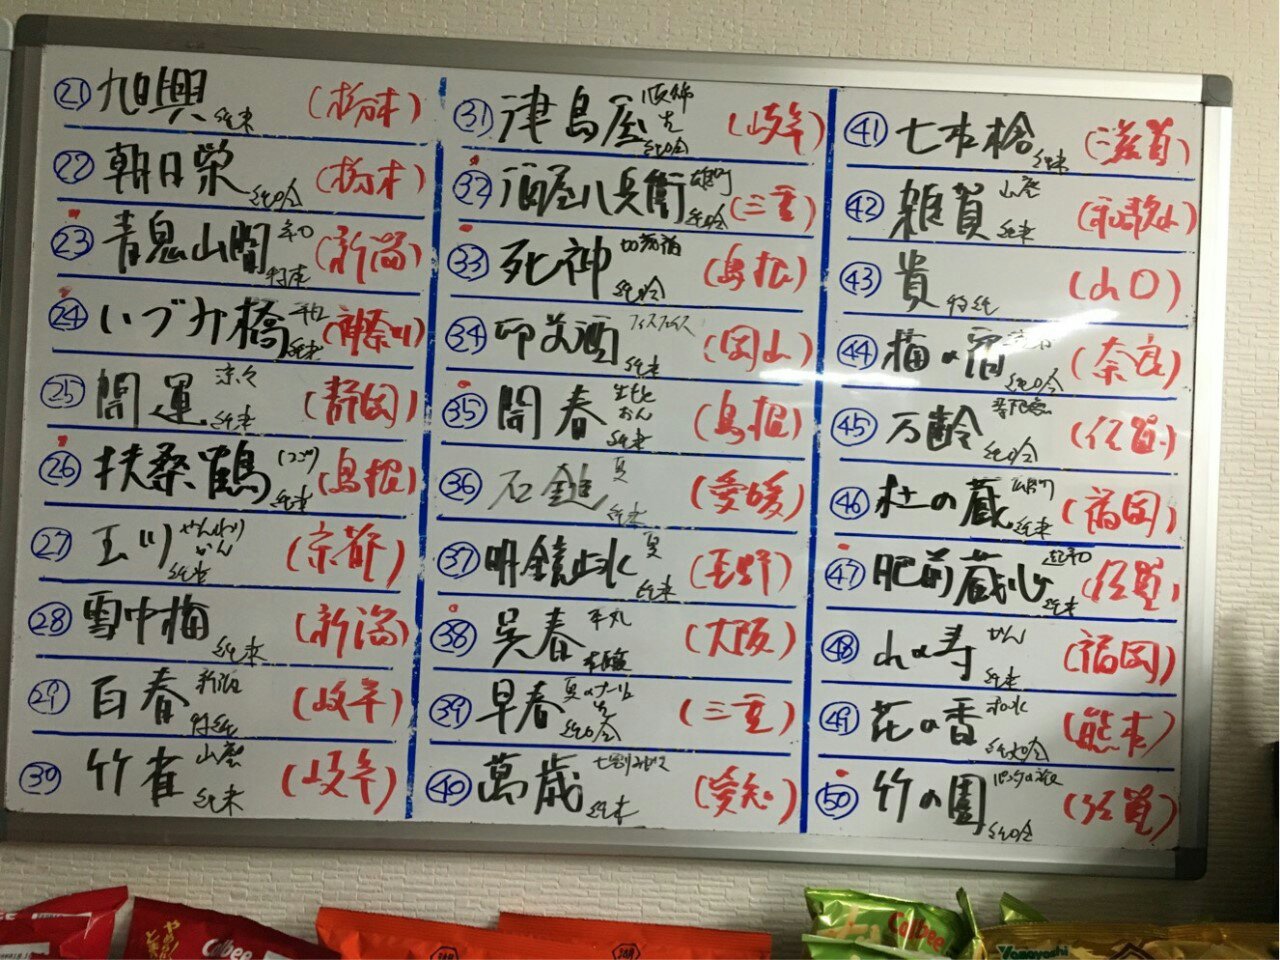 ㉑ 旭興 純米 (栃木)
㉒ 朝日栄 純吟 (栃木)
㉓ 青鬼山間 (新潟)
㉔ いづみ橋 純米 (神奈川)
㉕ 開運 涼々 純米 (静岡)
㉖ 扶桑鶴 純米 (島根)
㉗ 玉川 やんわり かん 純米 (京都)
㉘ 雪中梅 純米 (新潟)
㉙ 百春 特純 (岐阜)
㉚ 竹雀 山廃 純米 (岐阜)
㉛ 津島屋 純吟 (岐阜)
㉜ 酒屋八兵衛 雄町 純吟 (三重)
㉝ 死神 純吟 (島根)
㉞ 御前酒 純米 (岡山)
㉟ 開春 生もと おん 純米 (島根)
㊱ 石鎚 夏 純米 (愛媛)
㊲ 明鏡止水 夏 純米 (長野)
㊳ 呉春 本醸 (大阪)
㊴ 早春 夏の 純吟 (三重)
㊵ 萬歳 七割 純米 (愛知)
㊶ 七本槍 純米 (滋賀)
㊷ 雑賀 山廃 純米 (和歌山)
㊸ 貴 特純 (山口)
㊹ 梅の宿 純吟 (奈良)
㊺ 万齢 純吟 (佐賀)
㊻ 杜の蔵 雄町 純米 (福岡)
㊼ 肥前蔵心 純米 (佐賀)
㊽ 山の寿 かん 純米 (福岡)
㊾ 花の香 和水 純大吟 (熊本)
㊿ 竹の園 純吟 (佐賀)
Calbee
Calbee
Yamayoshi